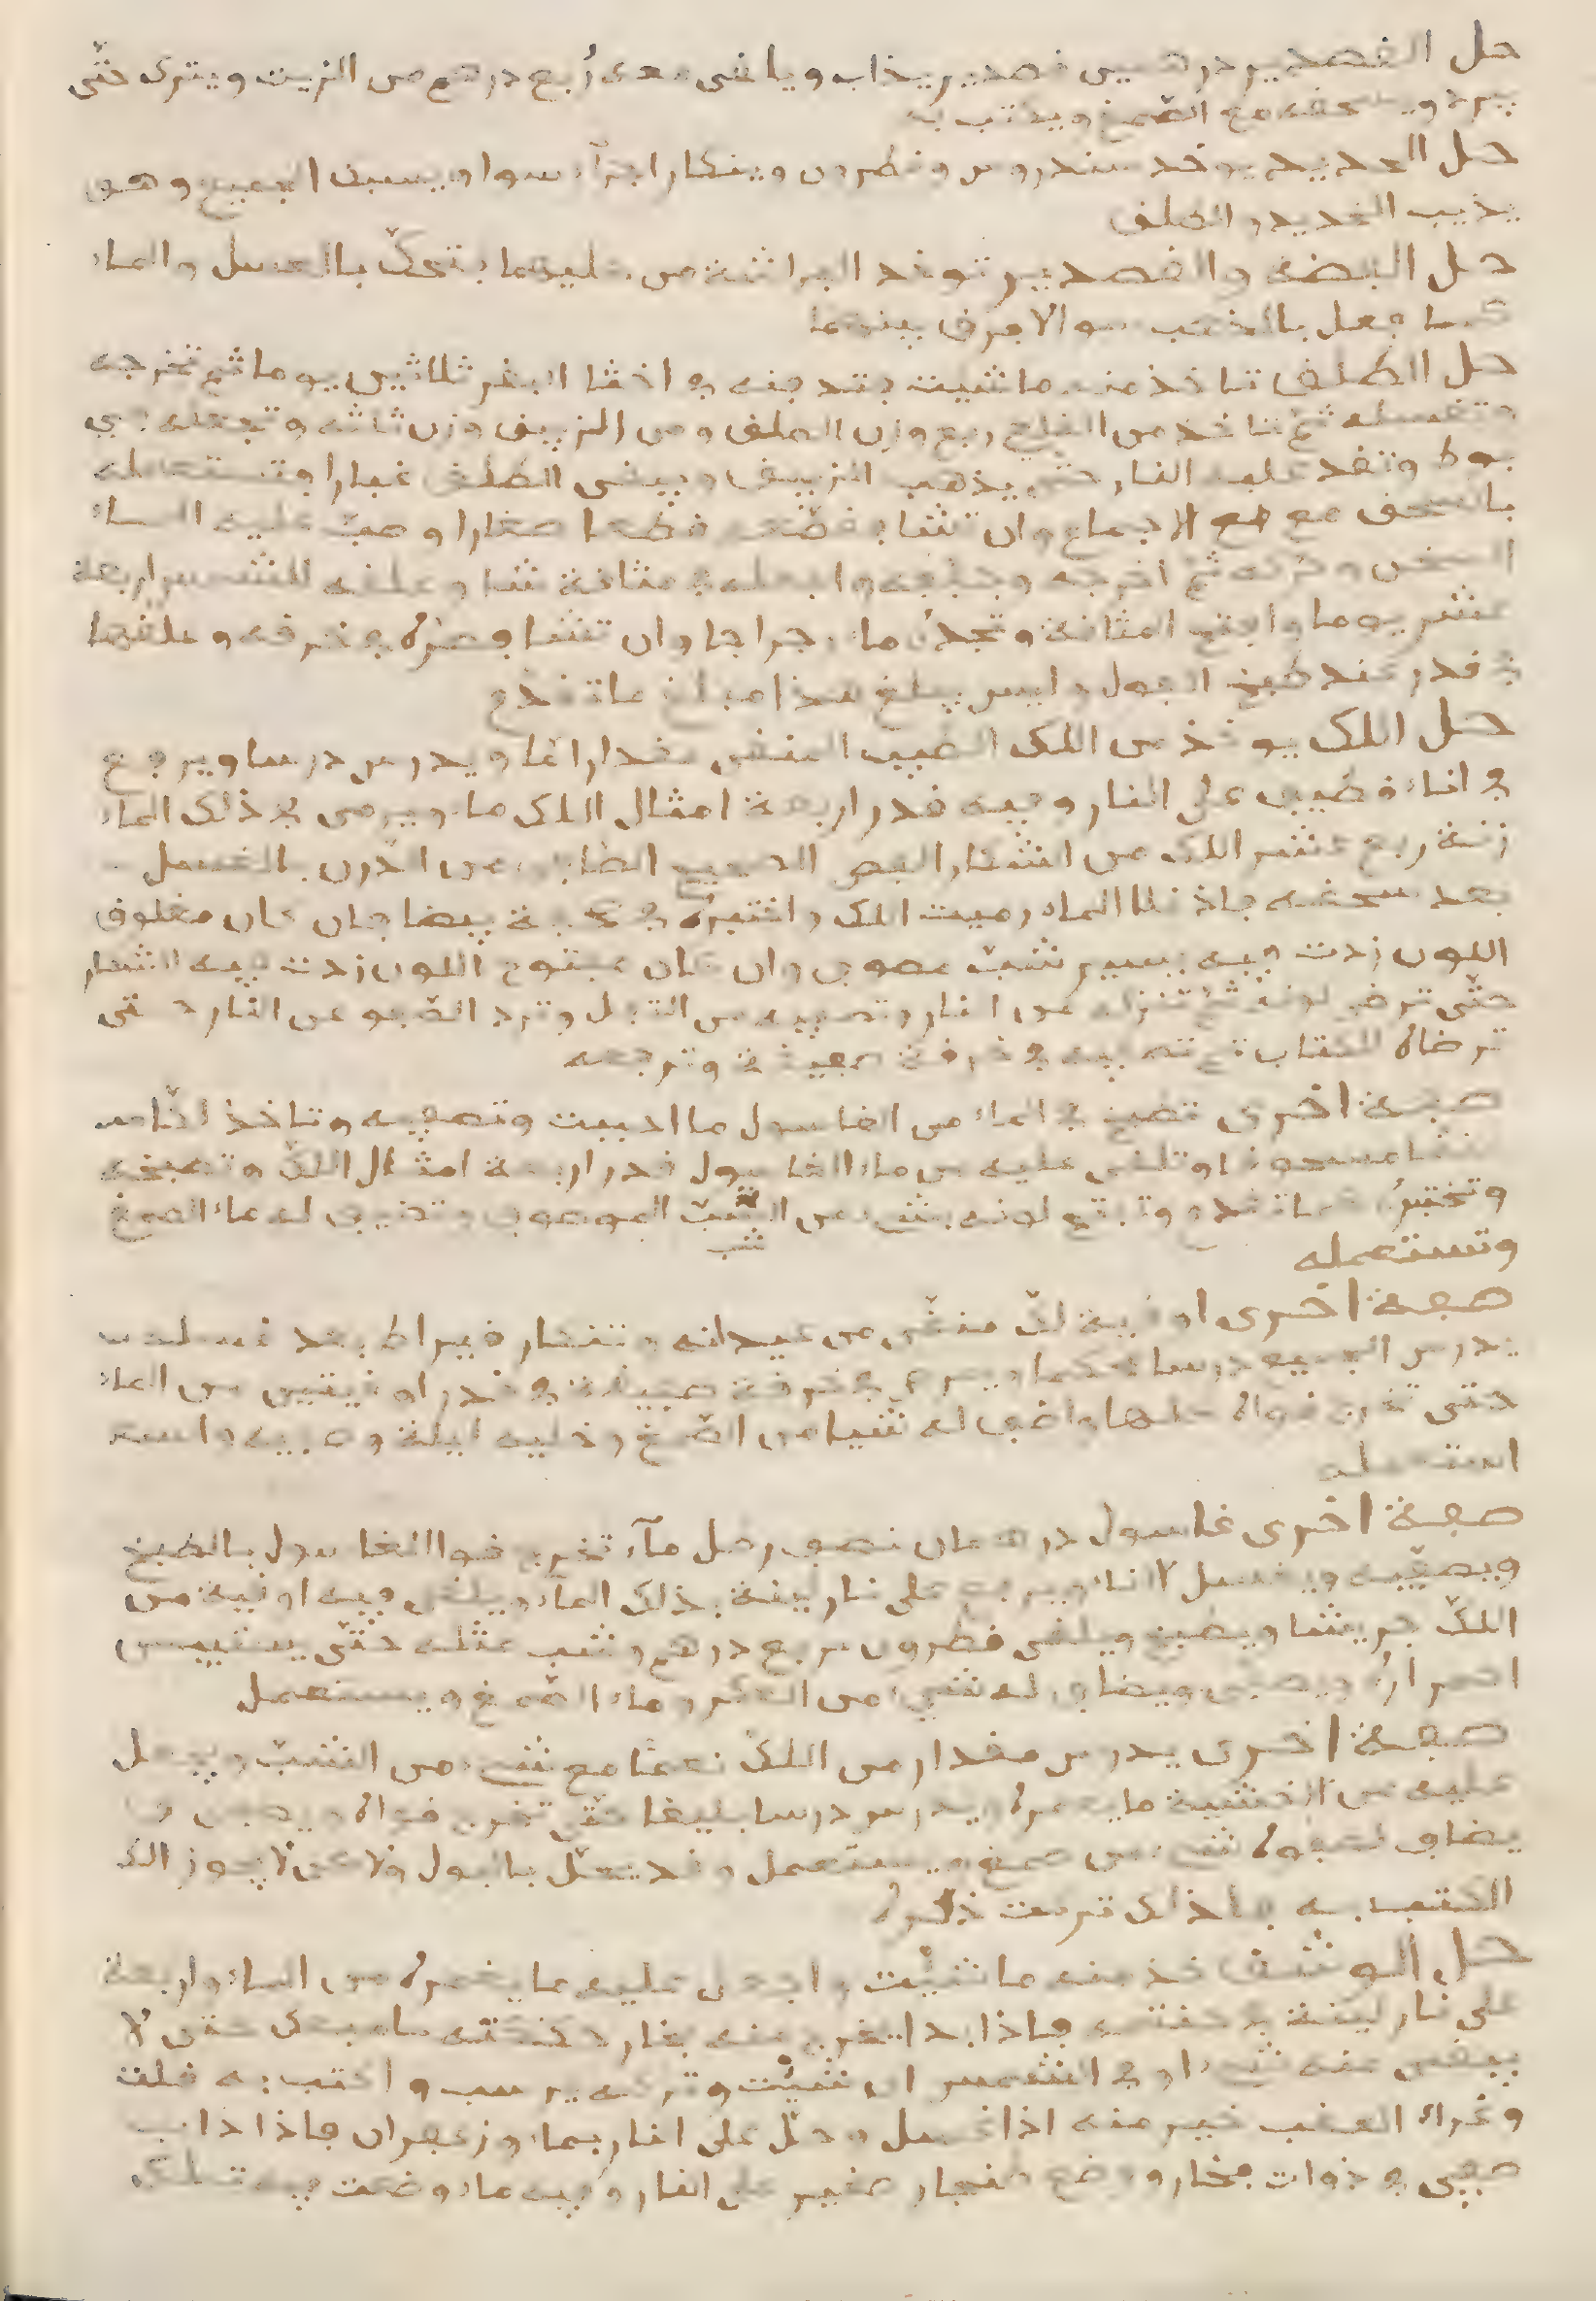 حل القصدير درهمين قصدير يذاب ويلقى معه رُبع درهم من الزيت ويترك حتّى
يبرد ويسحقه مع الصّمغ ويكتب به
حل الحديد يوخذ سندروس ونطرون وتنكار اجزآء سوا ويسبك الجميع وهو
يذيب الحديد والطلق
حل الفضه والقصدير توخذ البرائة من عليهما بتحكّ بالعسل والماء
كما فعل بالذهب سوا لا فرق بينهما
حل الطلق تاخذ منه ما شيت بتدفنه في اخثا البقر ثلاثين يوما ثم تخرجه
وتغسله ثم تاخذ من القلع ربع وزن الطلق ومن الزيبق وزن ثلثه وتجعله في
بوط وتقد عليه النار حتى يذهب الزيبق ويبقى الطلق غبارا وتستعمله
بالسحق مع الاجماع وان تشا فضّعه قطعا صغارا وصبّ عليه الماء
السخن وحركه ثم اخرجه وجففه واجعله في مثانة شا وعلقه للشمس اربعة
عشر يوما وافتح المثانة وتجدُه ماء رجراجا وان تشا بصره في خرقه وعلقها
في قدر عند طبخ الفول وليس يبلغ هذا مبلغ ما تقدم
حل اللك يوخذ من اللك الطيب المنقى مقدارا ما ويدرس درسا ويرفع
في اناء نظيف على النار وفيه قدر اربعة امثال اللك ماء ويرمى في ذلك الماء
زنة ربع عشر اللك من اشنان القصر الصحيح الطاير من الدرن بالغسل
بعد سحقه فاذا غلا الماء رميت اللك واختبره في كتبة بيضا فان كان مغلوق
اللون زدت فيه يسير شبّ مصوى وان كان مفتوح اللون زدت فيه اشنان
حتّى ترضى لونه ثم تنزله عن النار وتصفيه من الثفل وترد الصّفو على النار حتى
ترضاه للكتاب ثم تصفيه في خرقة صفيقة وترفعه
صفة اخرى تطبخ في الماء من الغاسول ما احببت وتصفيه وتاخذ اللك
مسحوقا وتلقى عليه من ماء الغاسول قدر اربعة امثال اللكّ وتطبخه
وتختبرُه كما تقدم وتفتح لونه بشيء من الشّبّ الموصوف وتضيف له ماء الصمغ
شب
وتستعمله
صفة اخرى اوقية لكّ منقّى من عيدانه وتنكار قيراط بعد غسله
يدرس الجميع درسا محكما ويرمى في خرقة صفيقة في قدر اوقيتين من الماء
حتّى تخرج قواه كلها واضف له شيا من الصّمغ وخليه ليلة وصفيه واسته
استعمله
صفة اخرى غاسول درهمان نصف رطل مآء تخرج قوا الغاسول بالطبخ
ويصفّيه ويغسل الاناء ويرفع على نار لينة بذلك الماء ويلقى فيه اوقية من
اللكّ جريشا ويطبخ ويلقى نطرون ربع درهم وشب مثله حتّى يستبين
احمراره ويصفى ويضاف له شيء من السكر وماء الصّمغ ويستعمل
صفة اخرى يدرس مقدار من اللكّ نعمّا مع شيء من الشبّ ويجعل
عليه من الخشية ما يغمره ويدرس درسا بليغا حتّى تخرج قواه ويصفى و
يضاف لصفوه شيء من صمغ ويستعمل وقد يحلّ بالبول ولاكن لا يجوز الك
الكتب به فلذلك تركت ذكره
حل الوشق خذ منه ما شيّت واجعل عليه ما يغمره من الماء وارفعه
على نار لينة في حقنته فاذا بدا يخرج منه بخار دككته بيدك حتى لا
يبقى منه شيء او في الشمس ان شيّت وتركه يرسب واكتب به قلت
وغراء العقب خير منه اذا غسل وحلّ على النار بماء وزعفران فاذا ذاب
صفي في ذوات بخار وضع طنجار صغير على النار وفيه ماء وضعت فيه تلك